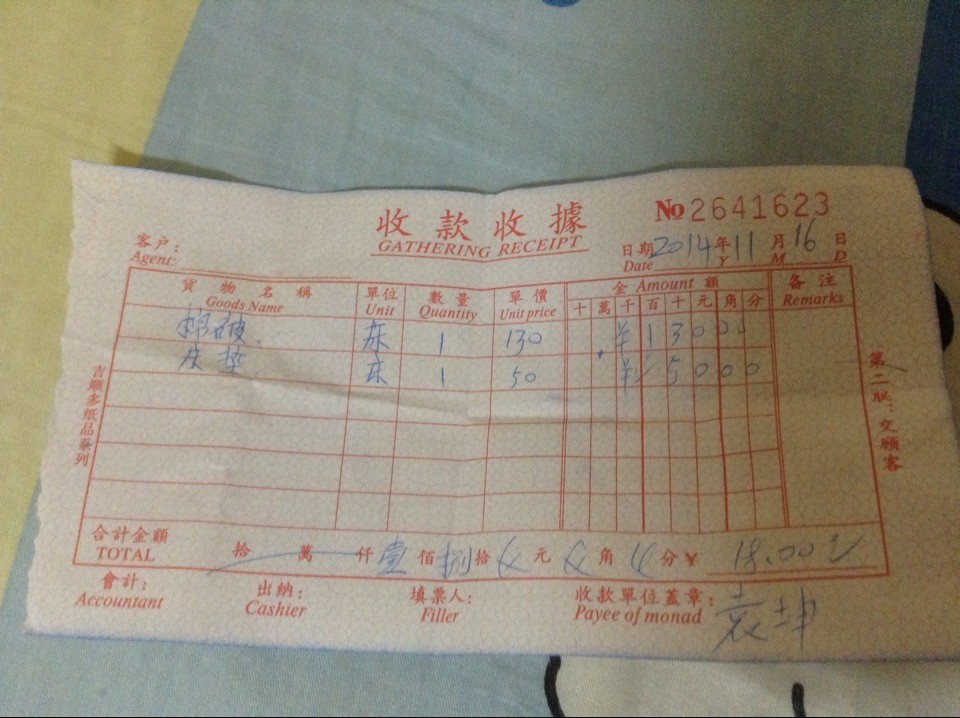 收款收據
GATHERING RECEIPT
No 2641623
客户：
Agent:
日期 2014 年 11 月 16 日
Date Y M D
貨物名稱 單位 數量 單價 金 Amount 額 备注
Goods Name Unit Quantity Unit price 十 萬 千 百 十 元 角 分 Remarks
棉被 床 1 130 ¥ 1 3 0 0 0
床垫 床 1 50 ¥ 5 0 0 0
吉順多纸品系列
第二联：交顾客
合計金額 拾 萬 仟 壹 佰 捌 拾 元 角 分 ¥
TOTAL
會計： 出納： 填票人： 收款單位蓋章： 袁坤
Accountant Cashier Filler Payee of monad